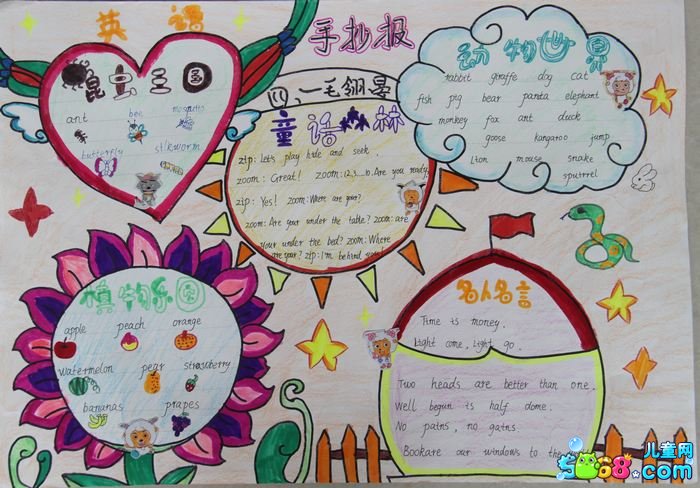 英语
手抄报
昆虫王国
ant
bee
mosquitto
butterfly
silkworm
(1)、一毛翎晏
童话森林
zip: Let's play hide and seek.
zoom: Great! zoom:1,2,3....10. Are you ready
zip: Yes! zoom: Where are your?
zoom: Are your under the table? zoom: are
your under the bed? zoom: Where
are your? zip: I'm behind you!
动物世界
rabbit giraffe dog cat
fish pig bear panta elephant
monkey fox ant duck
goose kangaroo jump
Lion mouse snake
squirrel
植物乐园
apple peach orange
watermelon pear strawberry
bananas prapes
名人名言
Time is money.
Light come, Light go.
Two heads are better than one.
Well begun is half dome.
No pains, no gains.
Bookare our windows to the
儿童网
5068.com